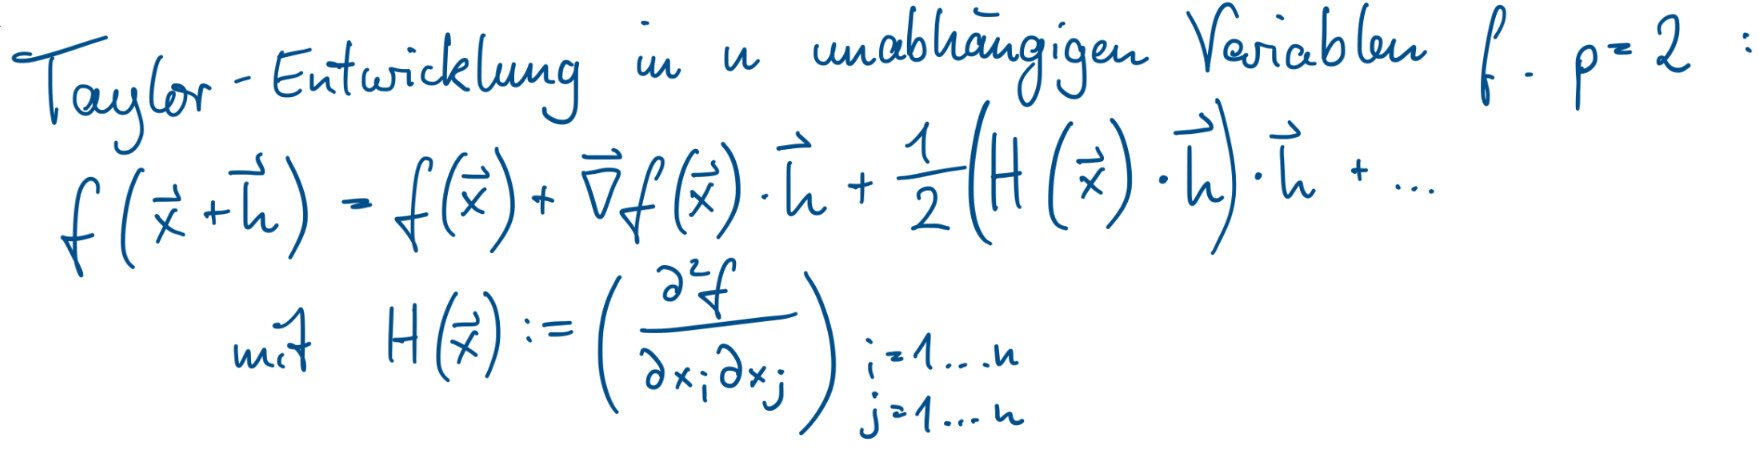 Taylor-Entwicklung in n unabhängigen Variablen f. p=2 :
f(x⃗+h⃗) = f(x⃗) + ∇⃗f(x⃗)·h⃗ + 1/2 (H(x⃗)·h⃗)·h⃗ + ...
mit H(x⃗) := (∂²f / ∂xᵢ∂xⱼ) i=1...n
j=1...n